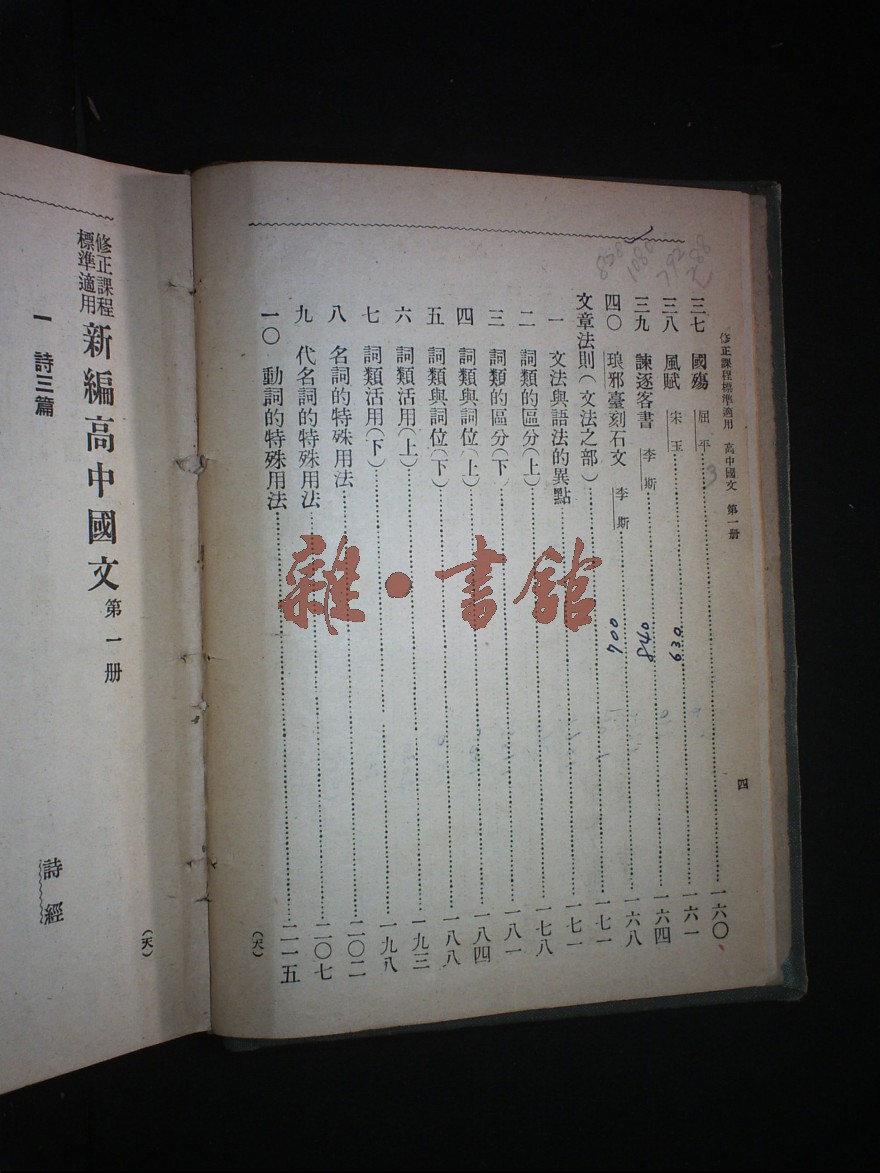 修正課程標準適用 高中國文 第一册 四
三七 國殤 屈平 一六〇
三八 風賦 宋玉 一六一
三九 諫逐客書 李斯 一六四
四〇 琅邪臺刻石文 李斯 一六八
文章法則(文法之部) 一七一
一 文法與語法的異點 一七一
二 詞類的區分(上) 一七八
三 詞類的區分(下) 一八一
四 詞類與詞位(上) 一八四
五 詞類與詞位(下) 一八八
六 詞類活用(上) 一九三
七 詞類活用(下) 一九八
八 名詞的特殊用法 二〇二
九 代名詞的特殊用法 二〇七
一〇 動詞的特殊用法 二一五
(天)
288
792
1080
3
630
840
700
雜·書館
(天)
修正課程標準適用 新編高中國文 第一册
一 詩三篇 詩經